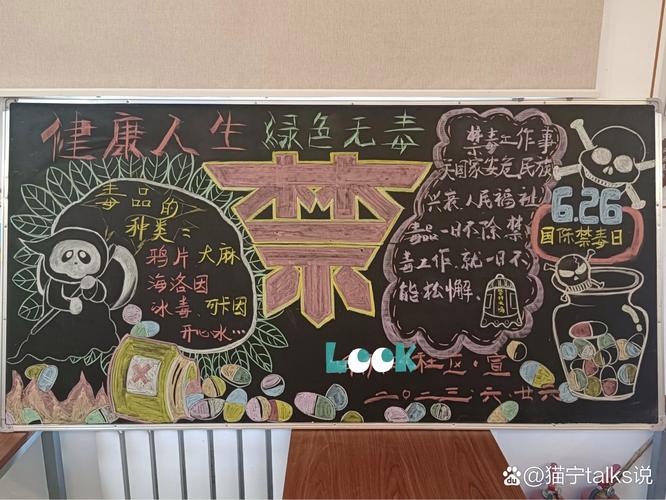 健康人生 绿色无毒
毒品的
种类:
鸦片 大麻
海洛因
冰毒、可卡因
开心水…
禁
禁毒工作事
关国家安危 民族
兴衰、人民福祉
毒品一日不除禁
毒工作、就一日不
能松懈
6.26
国际禁毒日
LOOK
社区·宣
二〇二三·六·廿六
@猫宁talks说